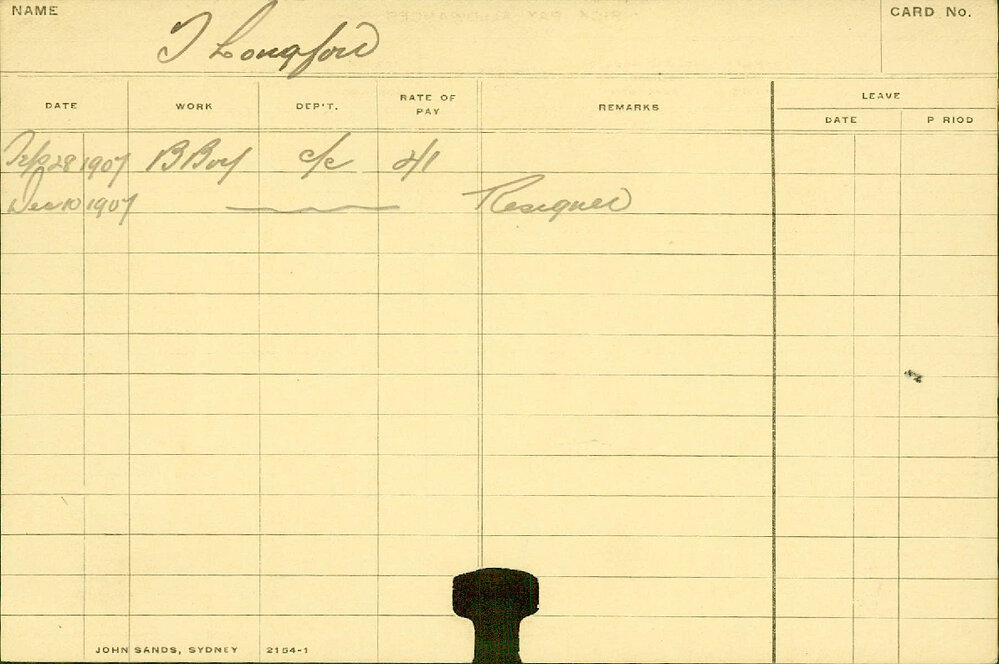 NAME
CARD No.
T Longford
DATE WORK DEP'T. RATE OF PAY REMARKS LEAVE
DATE P RIOD
28 1907 B Boy c/c
Dec 10 1907 Resigned
JOHN SANDS, SYDNEY 2154-1